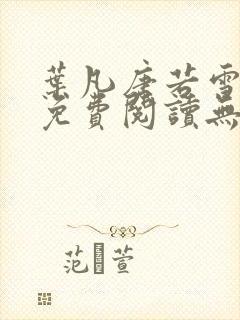 葉凡唐若雪
免費閱讀無
范 萱